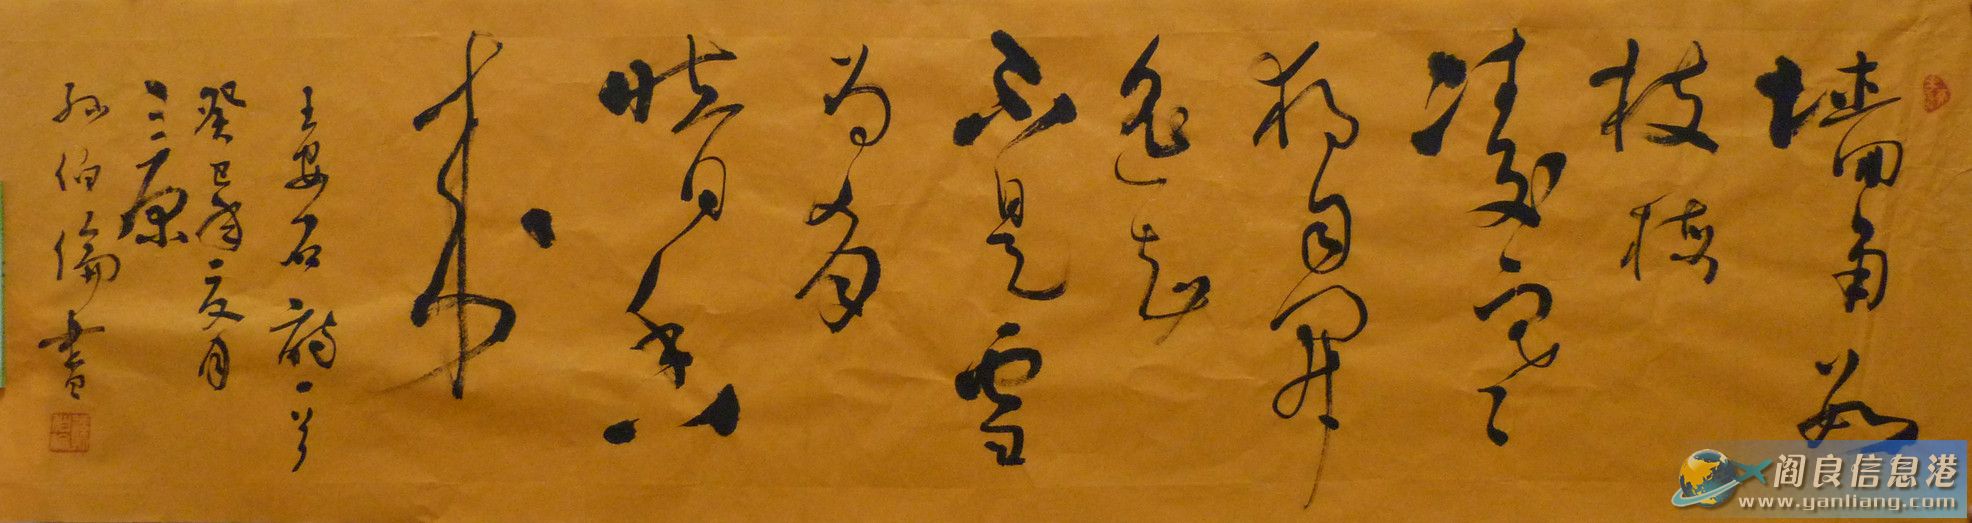 墙角数
枝梅
凌寒
独自开
遥知
不是雪
为有
暗香
来
王安石诗一首
癸巳年夏月
三原
孙伯倫書
阎良信息港
www.yanliang.com